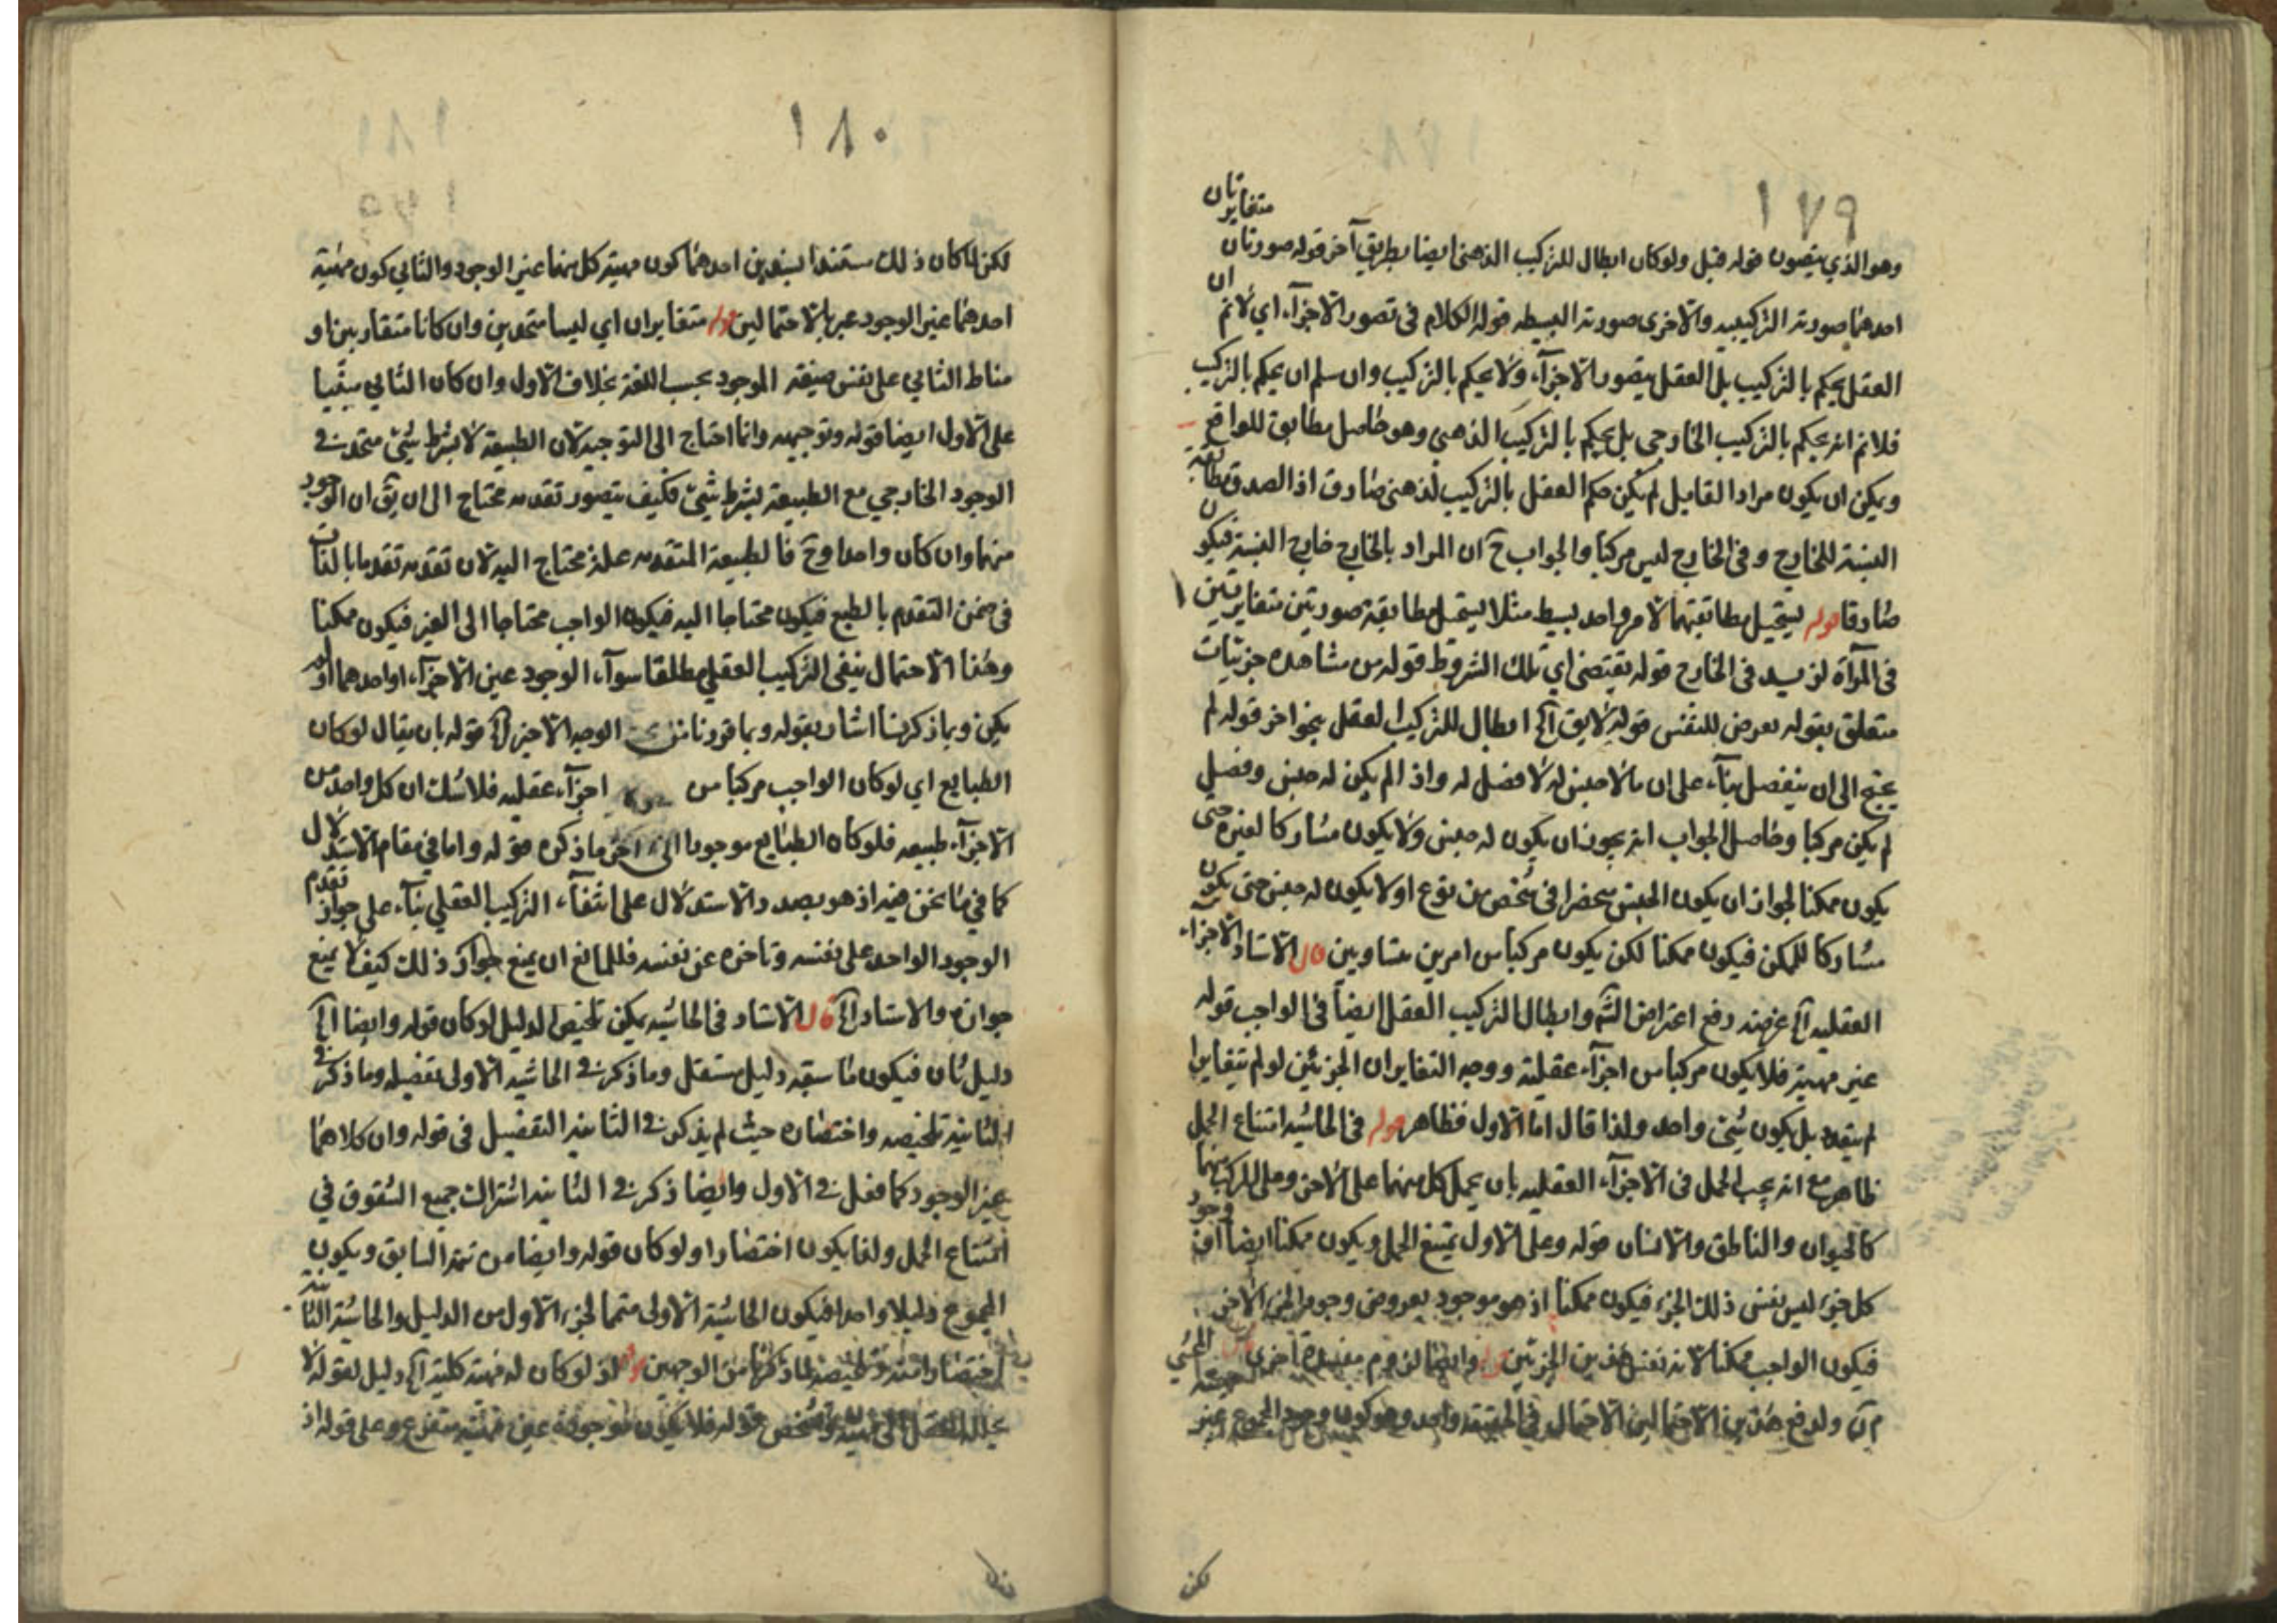 ١٧٩
وهو الذي يتصور قوله قيل ولو كان ابطال للتركيب الذهني ايضا بطريق آخر قوله صورتان متغايرتان
احدهما صورته التركيبية والاخرى صورته البسيطه قوله الكلام في تصور الاجزآء اي لانم ان
العقل يحكم بالتركيب بل العقل يتصور الاجزآء ولا يحكم بالتركيب وان سلم ان يحكم بالتركيب
فلانم انه يحكم بالتركيب الخارجي بل يحكم بالتركيب الذهني وهو حاصل مطابق للواقع
ويمكن ان يكون مراد القايل لم يكن حكم العقل بالتركيب الذهني صادقا اذ الصدق مطابقة
النسبة للخارج وفي الخارج ليس مركبا والجواب ح ان المراد بالخارج خارج النسبة فيكون
صادقا قوله يستحيل مطابقتهما لامر واحد بسيط مثلا يستحيل مطابقة صورتين متغايرتين
في المرآة لزيد في الخارج قوله يقتضي اي تلك الشروط قوله من مشاهده جزئيات
متعلق بقوله يعرض للنفس قوله لا يق آه ابطال للتركيب العقلي بنحو اخر قوله لم
يحتج الى ان ينفصل بنآء على ان ما لا جنس له لا فصل له واذا لم يكن له جنس وفصل
لم يكن مركبا وحاصل الجواب انه يجوز ان يكون له جنس ولا يكون مشاركا لغيره حتى
يكون ممكنا لجواز ان يكون الجنس منحصرا في شخص من نوع او لا يكون له جنس حتى يكون
مشاركا للممكن فيكون ممكنا لكن يكون مركبا من امرين متساويين قال الاستاد الاجزاء
العقليه آه غرضه دفع اعتراض الشم وابطال التركيب العقلي ايضا في الواجب قوله
عين مهيته فلا يكون مركبا من اجزآء عقلية ووجه التغاير ان الجزئين لو لم يتغايرا
لم يتعدد بل يكون شيئ واحد ولذا قال اما الاول فظاهر قوله في الحاشيه امتناع الحمل
ظاهر مع انه يجب الحمل في الاجزآء العقليه بان يحمل كل منهما على الاخر وعلى المركب منهما
كالحيوان والناطق والانسان قوله وعلى الاول يمتنع الحمل ويكون ممكنا ايضا اذ وجود
كل جزء ليس نفس ذلك الجزء فيكون ممكنا اذ هو موجود بعروض وجود الجزء الاخر
فيكون الواجب ممكنا لانه نفس هذين الجزئين قوله وايضا لزوم مفسدة اخرى
ولدفع هذين الاحتمالين الاحتمال في الحقيقة واحد وهو كون وجود المجموع عين
لكن
١٨٠
لكن لما كان ذلك مستندا بسندين احدهما كون مهية كل منهما عين الوجود والثاني كون مهية
احدهما عين الوجود عبر بالاحتمالين قوله متغايران اي ليسا متحدين وان كانا متقاربين او
مناط الثاني على نفس صيغة الموجود بحسب اللغة بخلاف الاول وان كان الثاني مبنيا
على الاول ايضا قوله وتوجيهه وانما احتاج الى التوجيه لان الطبيعة لا بشرط شيئ متحد في
الوجود الخارجي مع الطبيعة بشرط شيئ فكيف يتصور تقدمه محتاج الى ان يق ان الوجود
منهما وان كان واحدا وح فالطبيعة المتقدمه علة محتاج اليه لان تقدمه تقدما بالذات
في ضمن التقدم بالطبع فيكون محتاجا اليه فيكون الواجب محتاجا الى الغير فيكون ممكنا
وهذا الاحتمال ينفي التركيب العقلي مطلقا سوآء الوجود عين الاجزآء او احدهما او لم
يكن وبما ذكرنا اشار بقوله وبما قررنا الوجه الاخير آه قوله بان يقال لو كان
الطبايع اي لو كان الواجب مركبا من اجزآء عقليه فلا شك ان كل واحد من
الاجزآء طبيعه فلو كان الطبايع موجودا الى اخر ما ذكره قوله واما في مقام الاستدلال
كما في ما نحن فيه اذ هو بصدد الاستدلال على انتفآء التركيب العقلي بنآء على جواز تقدم
الوجود الواحد على نفسه وتاخره عن نفسه فللمانع ان يمنع جواز ذلك كيف لا يمنع
جوازه والاستاد آه قال الاستاد في الحاشيه يمكن تلخيص الدليل لو كان قوله وايضا آه
دليل ثان فيكون ما سبقه دليل مستقل وما ذكر في الحاشيه الاولى تفصيله وما ذكر في
الثانية تلخيصه واختصاره حيث لم يذكر في الثانيه التفصيل في قوله وان كلاهما
عين الوجود كما فعل في الاول وايضا ذكر في الثانيه اشتراك جميع الشقوق في
امتناع الحمل ولذا يكون اختصارا ولو كان قوله وايضا من تتمة السابق ويكون
المجموع دليلا واحدا فيكون الحاشية الاولى متمما لجزء الاول من الدليل والحاشية الثانية
اختصارا منه وتلخيصه لما ذكرنا من الوجهين قوله اذ لو كان له مهية كلية آه دليل لقوله لا
يحلله العقل الى مهية وتشخص قوله فلا يكون موجودة عين مهيته متفرع وعلى قوله اذ